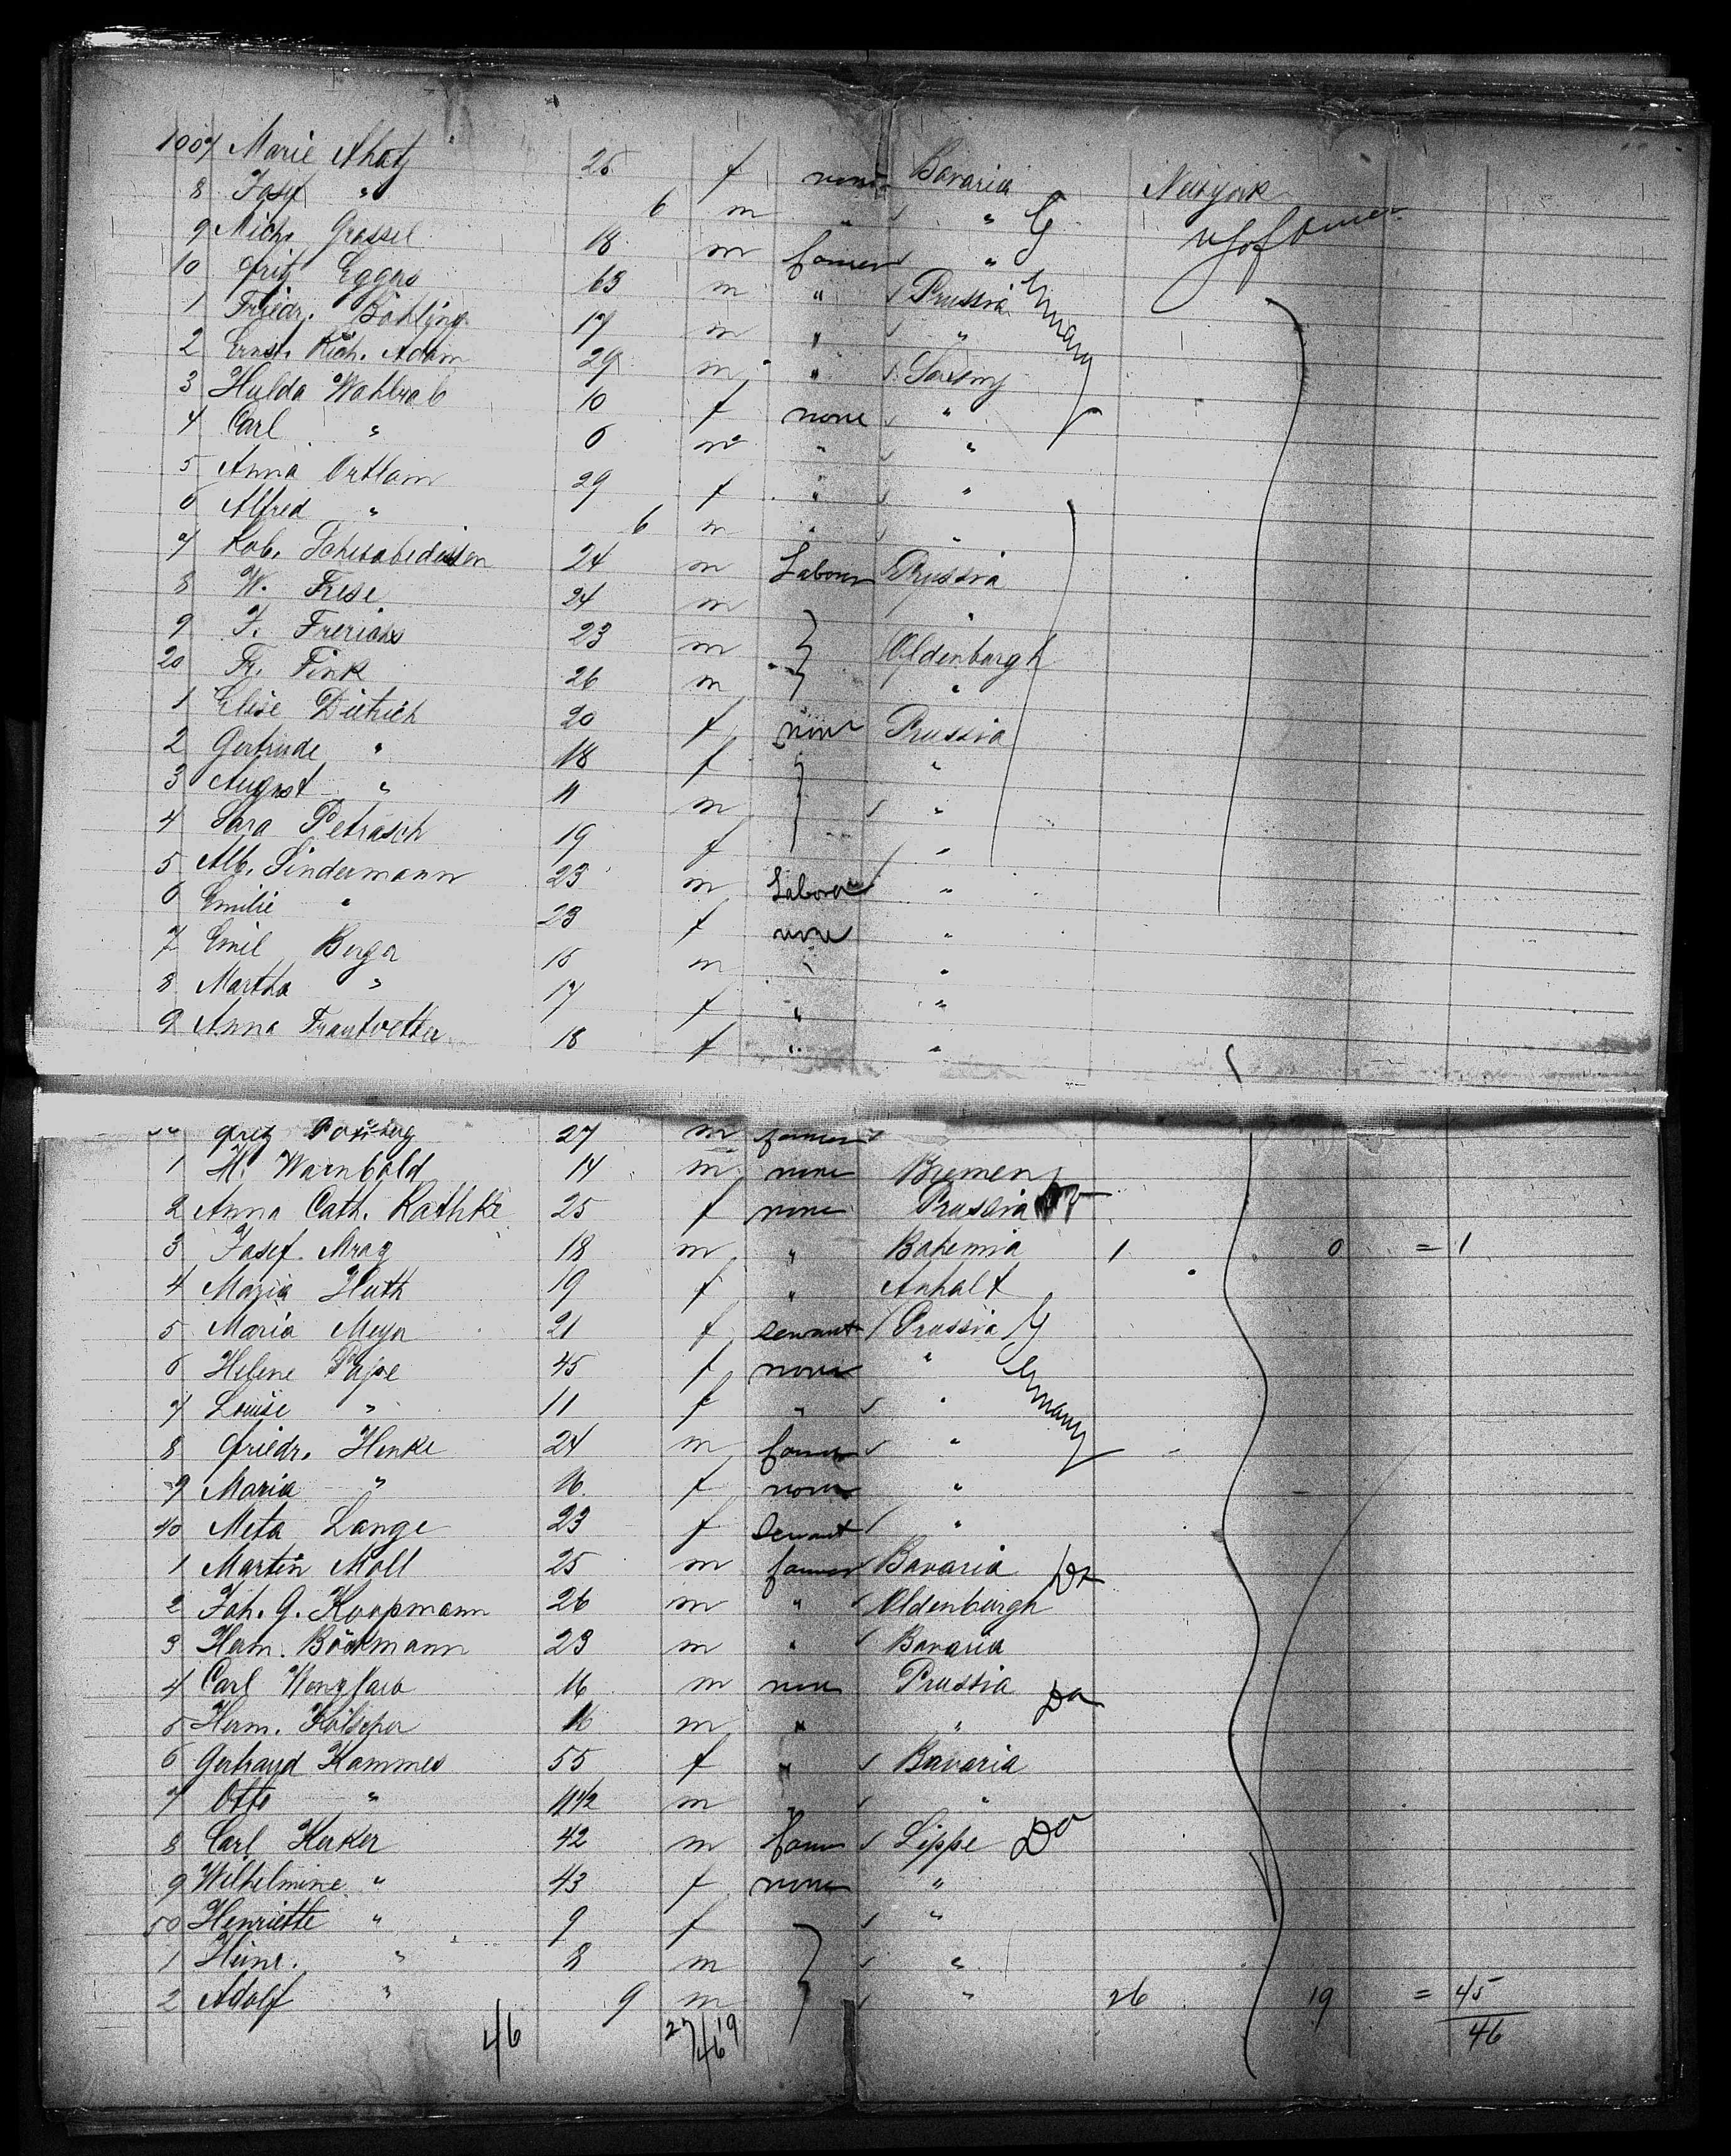 1007 Marie 25 f none Bavaria Newyork
8 Josef " 6 m " "
9 Mich. Grassel 18 m farmer "
10 Fritz Eggers 63 m " Prussia Germany
1 Friedr. Böhling 17 m " "
2 Ernst. Rich. Adam 29 m " Saxony
3 Hulda Wohlrab 10 f none "
4 Carl " 6 m " "
5 Anna Ortlam 29 f " "
6 Alfred " 6 m " "
7 Rob. Schwabedissen 24 m Labour Prussia
8 W. Frese 24 m "
9 F. Frerichs 23 m Oldenburgh
20 Fr. Fink 26 m "
1 Elise Dietrich 20 f none Prussia
2 Gertrude " 18 f "
3 August " 11 m "
4 Sara Petrasch 19 f "
5 Alb. Sindermann 23 m Labour "
6 Emilie " 23 f none "
7 Emil Berger 16 m " "
8 Martha " 17 f " "
9 Anna Trautvetter 18 f " "
Fritz 27 m farmer
1 H. Warnbold 14 m none Bremen
2 Anna Cath. Rathke 25 f none Prussia
3 Josef Mrag 18 m " Bohemia 1 0 = 1
4 Maria Huth 19 f " Anhalt
5 Maria Meyer 21 f servant Prussia
6 Helene Pape 45 f none " Germany
7 Louise " 11 f " "
8 Friedr. Henke 24 m farmer "
9 Maria " 16 f none "
40 Meta Lange 23 f servant "
1 Martin Moll 25 m farmer Bavaria Do
2 Joh. G. Koopmann 26 m " Oldenburgh
3 Herm. Böckmann 23 m " Bavaria
4 Carl 16 m none Prussia Do
5 Herm. Kölscher 16 m " "
6 Gertraud Kammes 55 f " Bavaria
7 Otto " 4 1/2 m " "
8 Carl Kerker 42 m farmer Lippe Do
9 Wilhelmine " 43 f none "
50 Henriette " 9 f "
1 Heinr. " 8 m "
2 Adolf " 9 m " 26 19 = 45
46 27/19 46 46